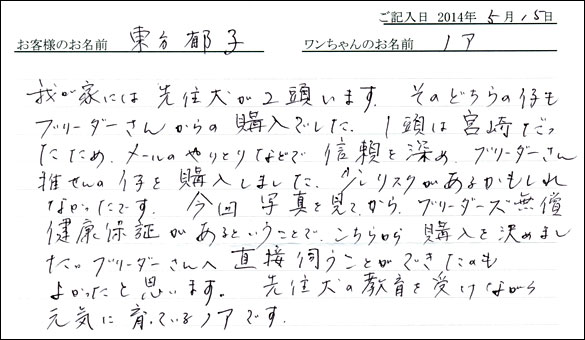 ご記入日 2014年 5月 15日
お客様のお名前 東方郁子 ワンちゃんのお名前 ノア
我が家には先住犬が2頭います。そのどちらの仔も
ブリーダーさんからの購入でした。1頭は宮崎だっ
たため、メールのやりとりなどで信頼を深め、ブリーダーさん
推せんの仔を購入しました。少しリスクがあるかもしれ
なかったです。今回写真を見てから、ブリーダーズ無償
健康保証があるということで、こちらから購入を決めまし
た。ブリーダーさんへ直接伺うことができたのも
よかったと思います。先住犬の教育を受けながら
元気に育っているノアです。